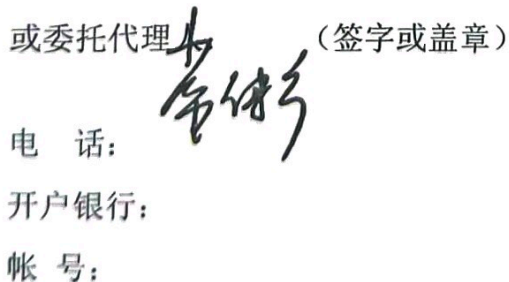 或委托代理人（签字或盖章）
电 话：
开户银行：
帐 号：